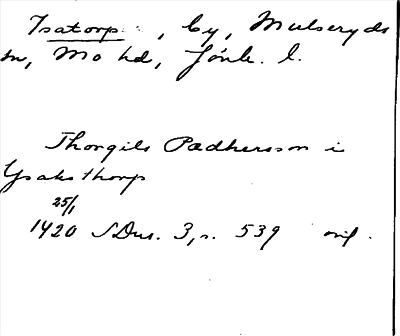 Isatorp, by, Mulseryds
sn, Mo hd, Jönk. l.
Thorgils Pædhersson i
Ysaksthorp
25/1
1420 SDns. 3, s. 539 orig.